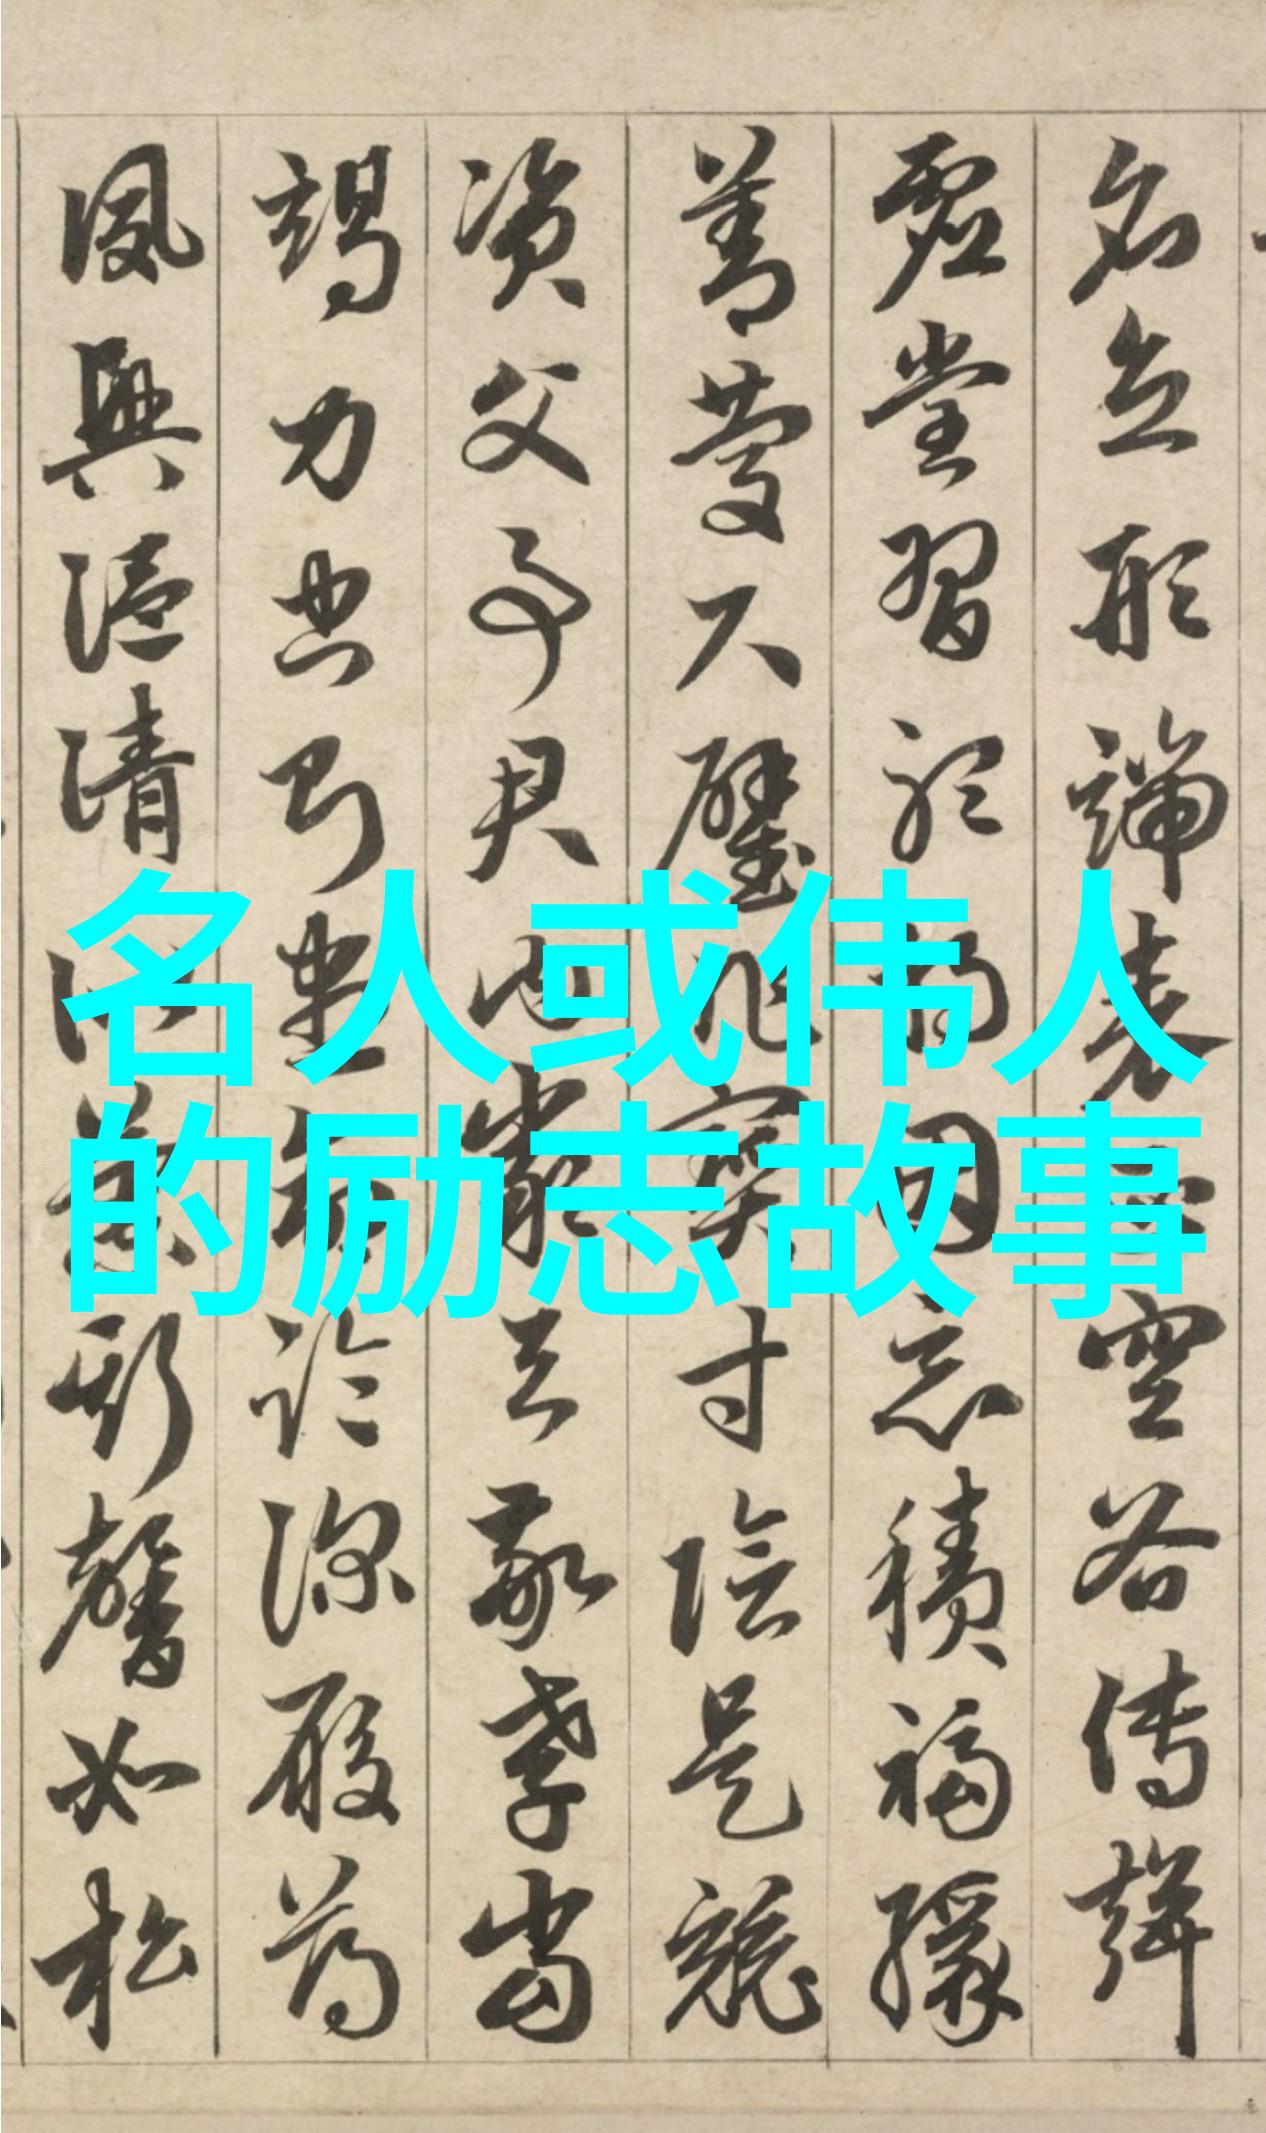 名人或伟人
的励志故事
名立形端表正空谷傳聲
虚堂習聽禍因惡積福緣
善慶尺璧非寶寸陰是競
資父事君曰嚴与敬孝當
竭力忠則盡命臨深履薄
夙興温清似蘭斯馨如松